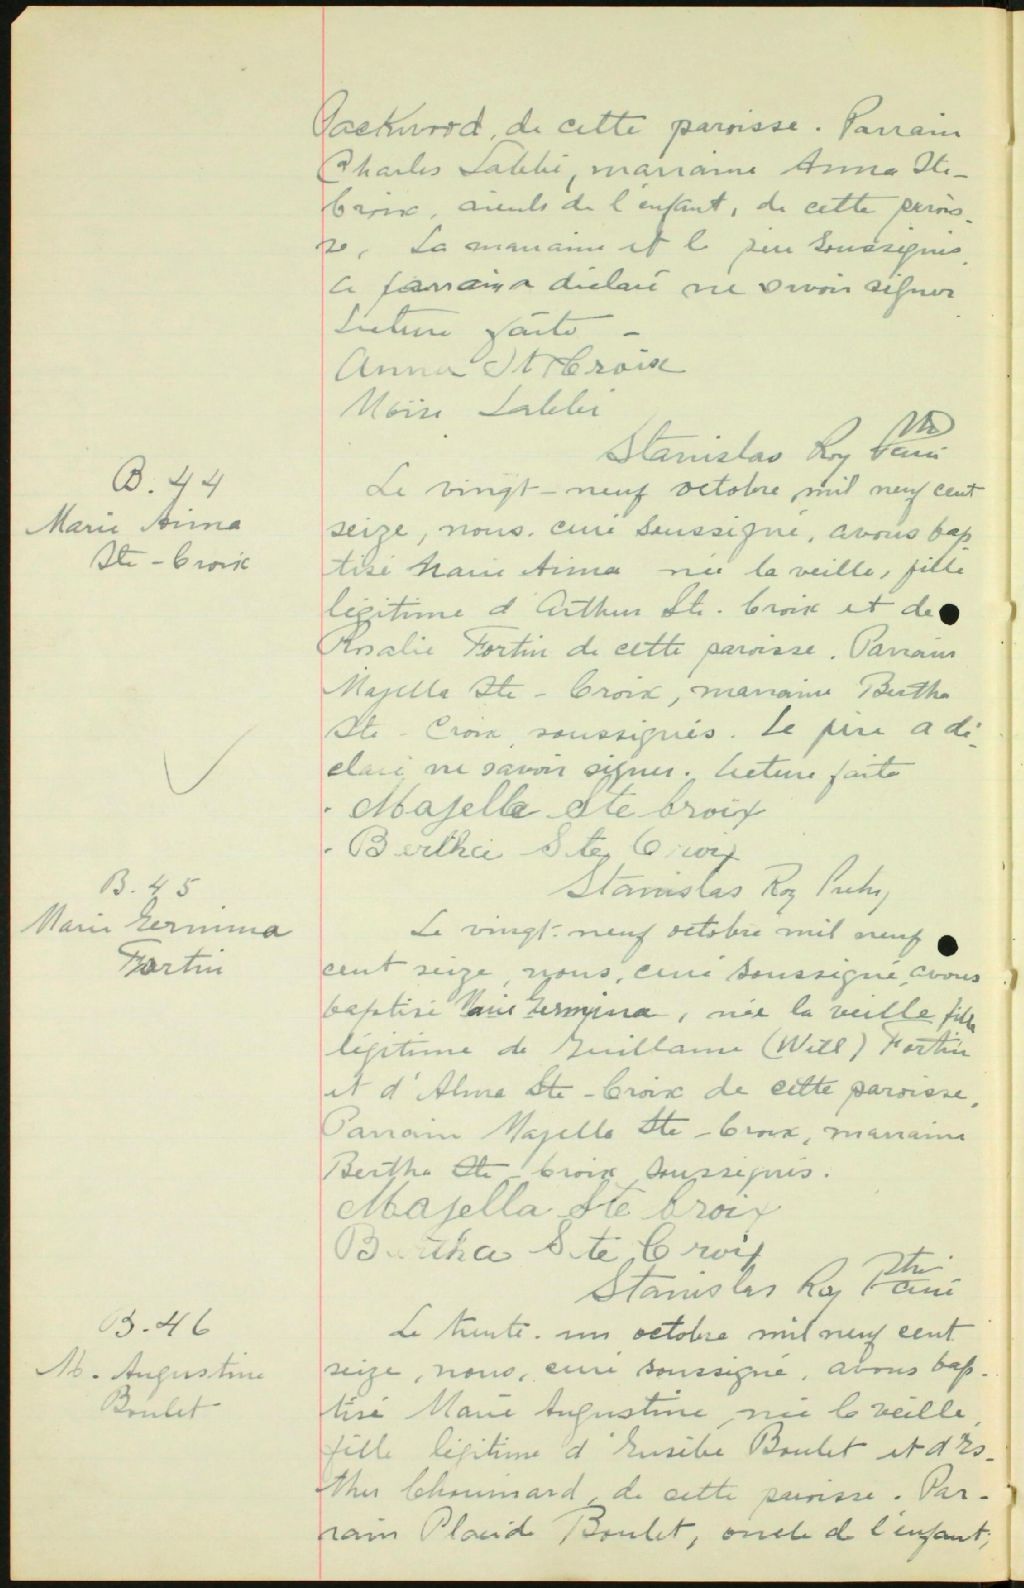 Packwood, de cette paroisse. Parrain
Charles Labbé, marraine Anna Ste-
Croix, aieuls de l'enfant, de cette parois-
se. La marraine et le père soussignés.
Le parrain a déclaré ne savoir signer
Lecture faite -
Anna St Croix
Moïse Labbé
Stanislas Roy Ptre Curé
B. 44
Marie Anna
Ste-Croix
Le vingt-neuf octobre mil neuf cent
seize, nous, curé soussigné, avons bap
tisé Marie Anna née la veille, fille
légitime d'Arthur Ste. Croix et de
Rosalie Fortin de cette paroisse. Parrain
Majella Ste-Croix, marraine Bertha
Ste-Croix, soussignés. Le père a dé-
claré ne savoir signer. Lecture faite
Majella Ste Croix
Bertha Ste Croix
Stanislas Roy
B. 45
Marie Germina
Fortin
Le vingt-neuf octobre mil neuf
cent seize, nous, curé soussigné, avons
baptisé Marie Germina, née la veille fille
légitime de Guillaume (Will) Fortin
et d'Alma Ste-Croix de cette paroisse.
Parrain Majella Ste-Croix, marraine
Bertha Ste-Croix soussignés.
Majella Ste Croix
Bertha Ste Croix
Stanislas Roy Ptre Curé
B. 46
M. Augustine
Boulet
Le trente-un octobre mil neuf cent
seize, nous, curé soussigné, avons bap-
tisé Marie Augustine née la veille,
fille légitime d'Eusèbe Boulet et d'Es-
ther Chouinard, de cette paroisse. Par-
rain Placide Boulet, oncle de l'enfant,